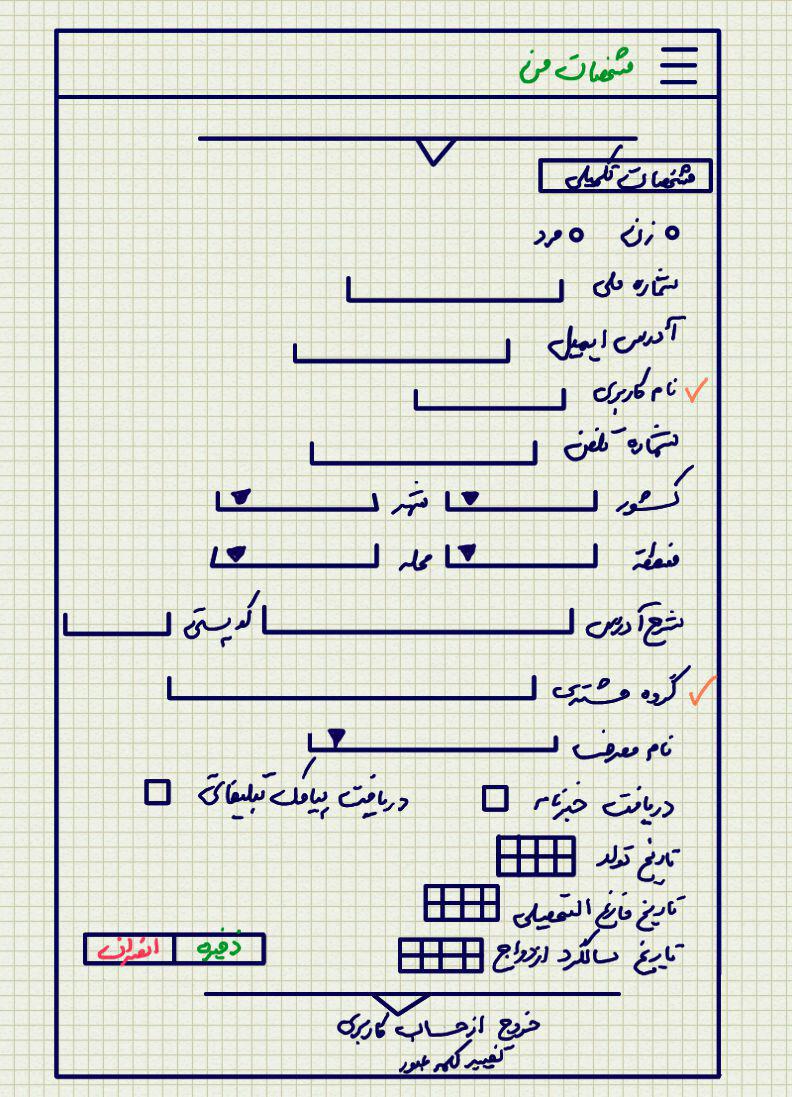 مشخصات من
مشخصات تکمیلی
زن مرد
شماره ملی
آدرس ایمیل
نام کاربری
شماره تلفن
کشور شهر
منطقه محله
شرح آدرس کد پستی
گروه مشتری
نام معرف
دریافت خبرنامه دریافت پیامک تبلیغاتی
تاریخ تولد
تاریخ فارغ التحصیلی
تاریخ سالگرد ازدواج ذخیره انصراف
خروج از حساب کاربری
تغییر کلمه عبور